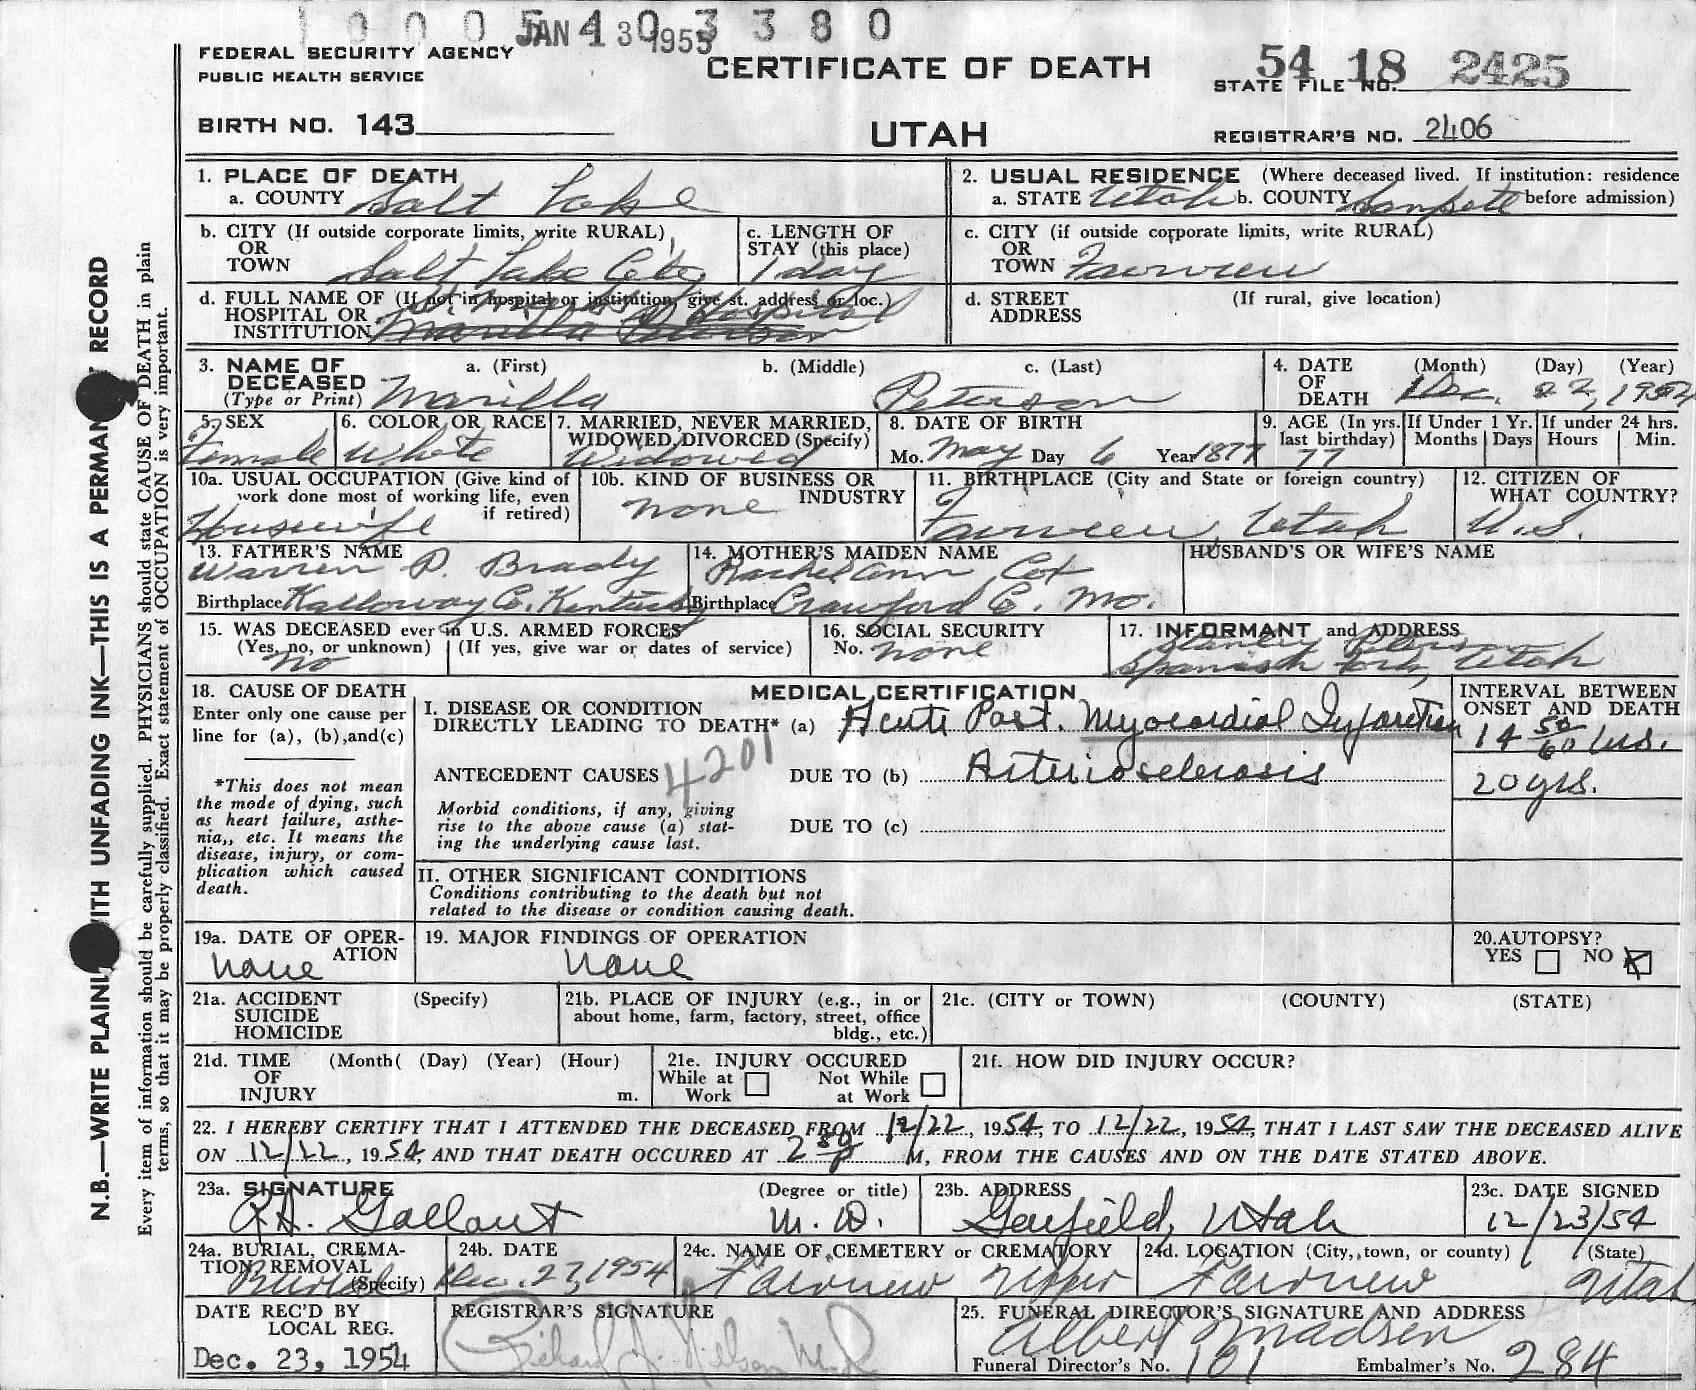 1 0 0 0 5 4 0 3 3 8 0
JAN 13 1955
FEDERAL SECURITY AGENCY
PUBLIC HEALTH SERVICE
CERTIFICATE OF DEATH
54 18 2425
STATE FILE NO.
BIRTH NO. 143
UTAH
REGISTRAR'S NO. 2406
1. PLACE OF DEATH
a. COUNTY Salt Lake
2. USUAL RESIDENCE (Where deceased lived. If institution: residence
a. STATE Utah b. COUNTY Sanpete before admission)
b. CITY (If outside corporate limits, write RURAL)
OR
TOWN Salt Lake City
c. LENGTH OF
STAY (this place)
1 day
c. CITY (if outside corporate limits, write RURAL)
OR
TOWN Fairview
d. FULL NAME OF (If not in hospital or institution, give st. address or loc.)
HOSPITAL OR Hospital
INSTITUTION Marilla Peterson
d. STREET (If rural, give location)
ADDRESS
3. NAME OF DECEASED
(Type or Print)
a. (First) b. (Middle) c. (Last)
Marilla Peterson
4. DATE OF DEATH
(Month) (Day) (Year)
Dec. 22, 1954
5. SEX
Female
6. COLOR OR RACE
White
7. MARRIED, NEVER MARRIED,
WIDOWED, DIVORCED (Specify)
Widowed
8. DATE OF BIRTH
Mo. May Day 6 Year 1877
9. AGE (In yrs. last birthday)
77
If Under 1 Yr.
Months Days
If under 24 hrs.
Hours Min.
10a. USUAL OCCUPATION (Give kind of
work done most of working life, even
if retired)
Housewife
10b. KIND OF BUSINESS OR
INDUSTRY
none
11. BIRTHPLACE (City and State or foreign country)
Fairview, Utah
12. CITIZEN OF
WHAT COUNTRY?
U.S.
13. FATHER'S NAME
Warren P. Brady
Birthplace Kalloway Co. Kentucky
14. MOTHER'S MAIDEN NAME
Rachel Ann Cox
Birthplace Crawford C. Mo.
HUSBAND'S OR WIFE'S NAME
15. WAS DECEASED ever in U.S. ARMED FORCES
(Yes, no, or unknown) (If yes, give war or dates of service)
no
16. SOCIAL SECURITY
No. none
17. INFORMANT and ADDRESS
Stanley Peterson
Spanish Fork, Utah
18. CAUSE OF DEATH
Enter only one cause per
line for (a), (b),and(c)
*This does not mean
the mode of dying, such
as heart failure, asthe-
nia,, etc. It means the
disease, injury, or com-
plication which caused
death.
MEDICAL CERTIFICATION
I. DISEASE OR CONDITION
DIRECTLY LEADING TO DEATH* (a) Acute Post. Myocardial Infarction
4201
ANTECEDENT CAUSES DUE TO (b) Arteriosclerosis
Morbid conditions, if any, giving
rise to the above cause (a) stat-
ing the underlying cause last.
DUE TO (c)
INTERVAL BETWEEN
ONSET AND DEATH
14 50/60 hrs.
20 yrs.
II. OTHER SIGNIFICANT CONDITIONS
Conditions contributing to the death but not
related to the disease or condition causing death.
19a. DATE OF OPER-
ATION
None
19. MAJOR FINDINGS OF OPERATION
None
20. AUTOPSY?
YES NO X
21a. ACCIDENT (Specify)
SUICIDE
HOMICIDE
21b. PLACE OF INJURY (e.g., in or
about home, farm, factory, street, office
bldg., etc.)
21c. (CITY or TOWN) (COUNTY) (STATE)
21d. TIME (Month( (Day) (Year) (Hour)
OF
INJURY m.
21e. INJURY OCCURED
While at Work Not While at Work
21f. HOW DID INJURY OCCUR?
22. I HEREBY CERTIFY THAT I ATTENDED THE DECEASED FROM 12/22, 1954, TO 12/22, 1954, THAT I LAST SAW THE DECEASED ALIVE
ON 12/22, 1954, AND THAT DEATH OCCURED AT 2 50 P M, FROM THE CAUSES AND ON THE DATE STATED ABOVE.
23a. SIGNATURE (Degree or title)
R.A. Gallant M.D.
23b. ADDRESS
Garfield, Utah
23c. DATE SIGNED
12/23/54
24a. BURIAL, CREMA-
TION, REMOVAL
(Specify)
Burial
24b. DATE
Dec. 27, 1954
24c. NAME OF CEMETERY or CREMATORY
Fairview Upper
24d. LOCATION (City, town, or county) (State)
Fairview Utah
DATE REC'D BY
LOCAL REG.
Dec. 23, 1954
REGISTRAR'S SIGNATURE
Richard J. Nelson
25. FUNERAL DIRECTOR'S SIGNATURE AND ADDRESS
Albert Madsen
Funeral Director's No. 101 Embalmer's No. 284
N.B.—WRITE PLAINLY WITH UNFADING INK—THIS IS A PERMANENT RECORD
Every item of information should be carefully supplied. PHYSICIANS should state CAUSE OF DEATH in plain
terms, so that it may be properly classified. Exact statement of OCCUPATION is very important.